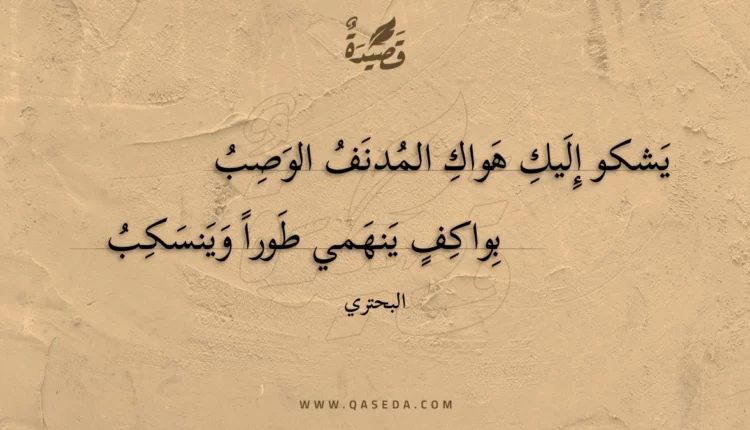 قَصِيدَةٌ
يَشكو إِلَيكِ هَواكِ المُدنَفُ الوَصِبُ
بِواكِفٍ يَنهَمي طَوراً وَيَنسَكِبُ
البحتري
WWW.QASEDA.COM